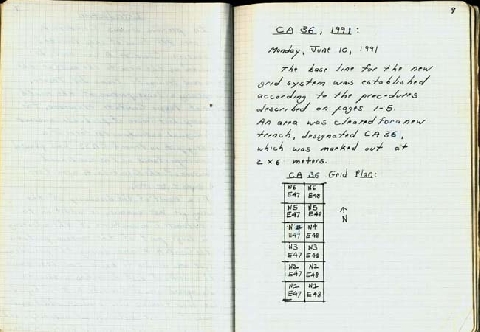 8
CA 36, 1991:
Monday, June 10, 1991
The base line for the new
grid system was established
according to the procedures
described on pages 1-5.
An area was cleared for a new
trench, designated CA 36,
which was marked out at
2 x 6 meters.
CA 36 Grid Plan:
N6 N6
E47 E48
N5 N5
E47 E48
N
N4 N4
E47 E48
N3 N3
E47 E48
N2 N2
E47 E48
N1 N1
E47 E48